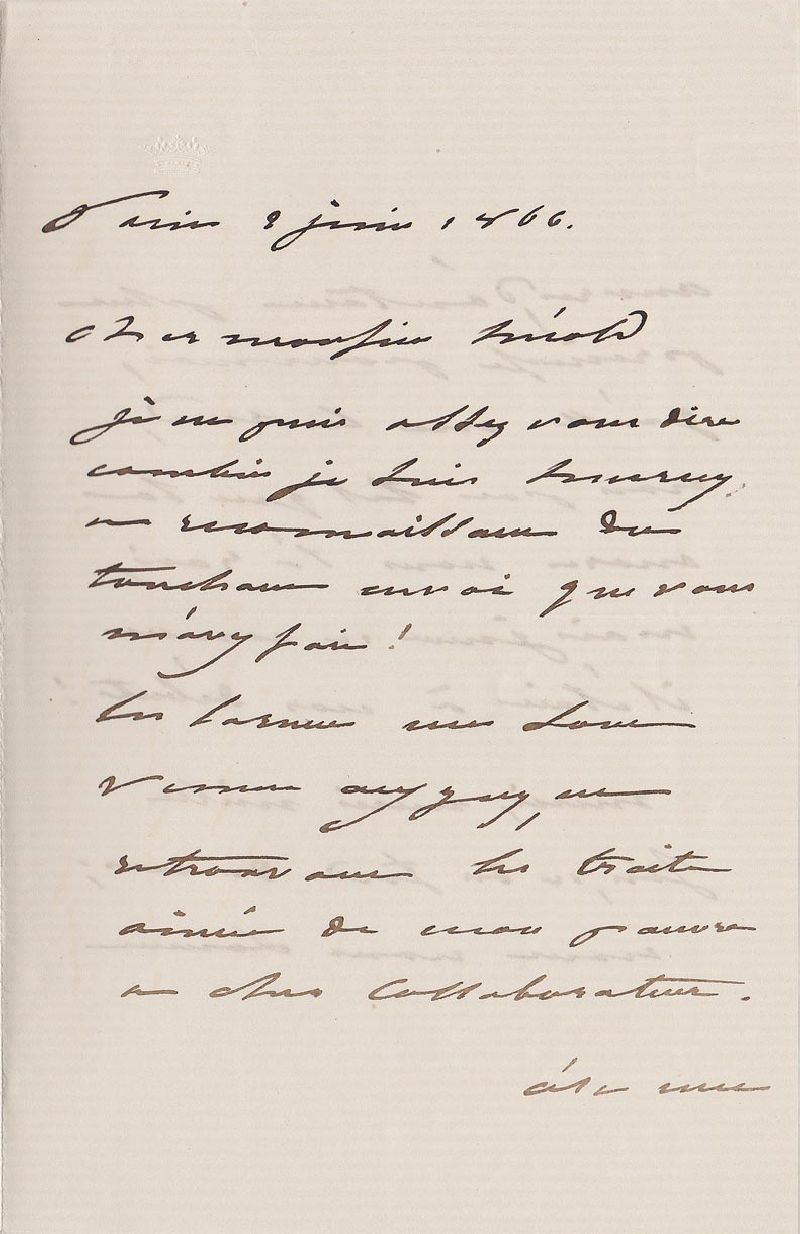 Paris 2 juin 1866.
cher monsieur hérold
je ne puis assez vous dire
combien je suis heureux
et reconnaissant du
touchant envoi que vous
m'avez fait!
les larmes me sont
venues aux yeux, en
retrouvant les traits
aimés de mon pauvre
et cher collaborateur.
c'est une